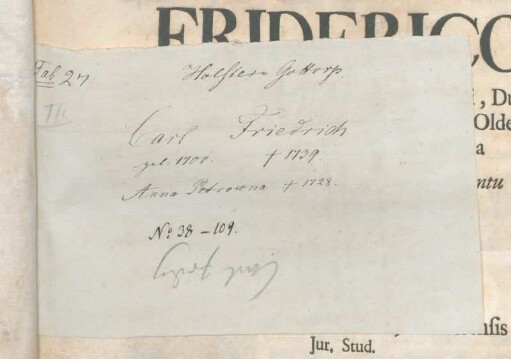 FRIDERICO
Tab 27
Holstein Gottorp.
III.
, Du
Olde
Carl Friedrich
a
geb. 1700. † 1739.
ntu
Anna Petrowna † 1728.
No 38 – 109.
nsis
Jur. Stud.